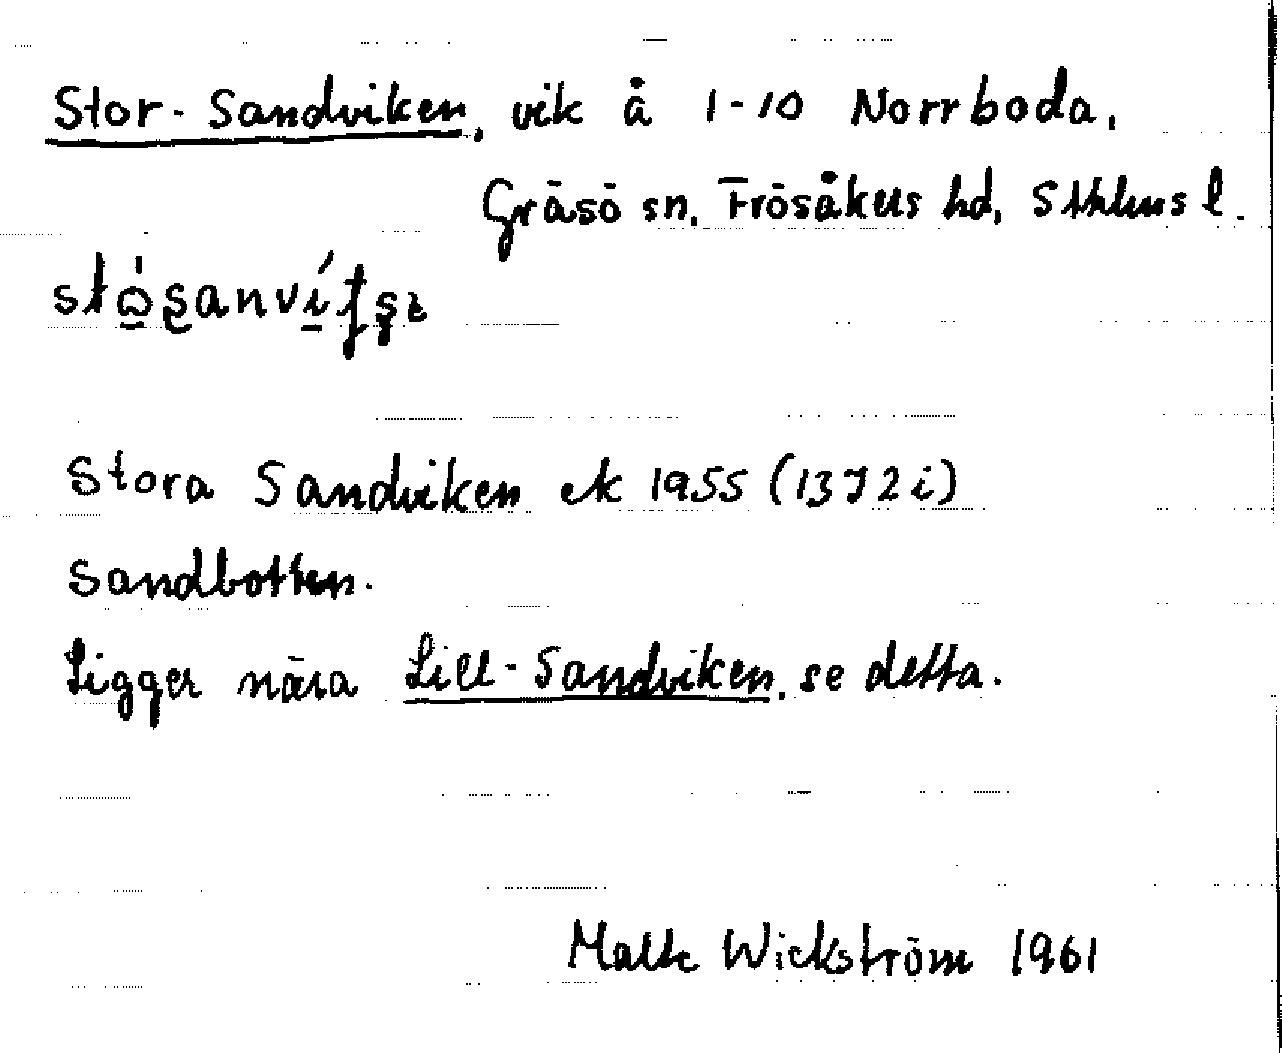 Stor-Sandviken, vik å 1-10 Norrboda,
Gräsö sn, Frösåkers hd, Sthlms l.
Stora Sandviken ek 1955 (13 I 2 i)
Sandbotten.
Ligger nära Lill-Sandviken, se detta.
Malte Wickström 1961